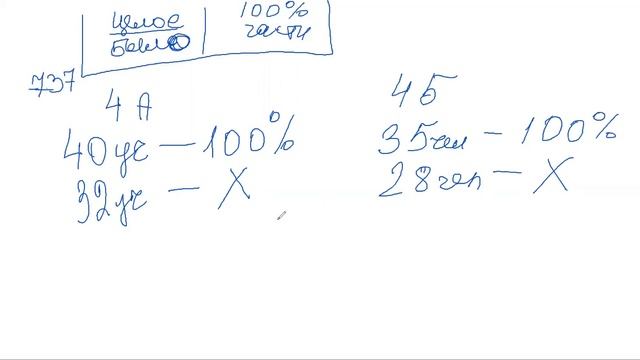 целое 100%
было части
737
4А
40 уч — 100%
32 уч — X
4Б
35 чел — 100%
28 чел — X